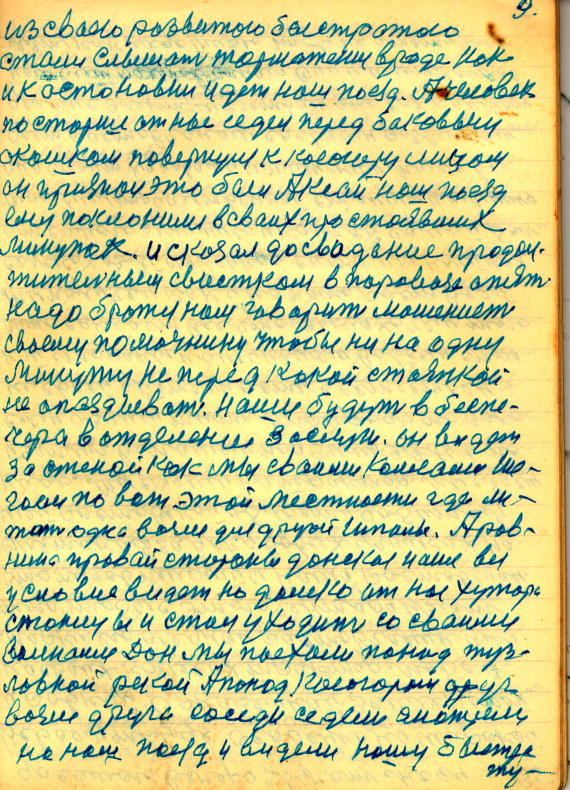 9.
из свого розвитого быстротого
стали слышат торможении вроде как
и к остоновки идет наш поезд. А человек
посторни от нас седел перед баковым
окошком повернул к косогору лицом
он признал это был Аксай наш поезд
ему поклонили в своих простоявших
минуток. и сказал досвидание продол-
жительным свистком в паровоза опят
надо брату нам говорит машинист
своему помочнику чтобы ни на одну
минуту не перед какой стоянкой
не опаздыват. наши будут в беспе-
чера в отделении за
он видет
за стеной как мы своими колесами ша-
гали по вот этой местности где ле-
жат одна возле для другой шпалы. А ров-
нина правай стороны донская наше вси
условие видет но далеко от нас хутора
стоялы и стал уходит со своими
волнами Дон мы поехали понад туз-
ловкой рекой А понад Косогорам друг
возле друга соседи седели смотрели
на наш поезд и видели нашу быстро
ту-